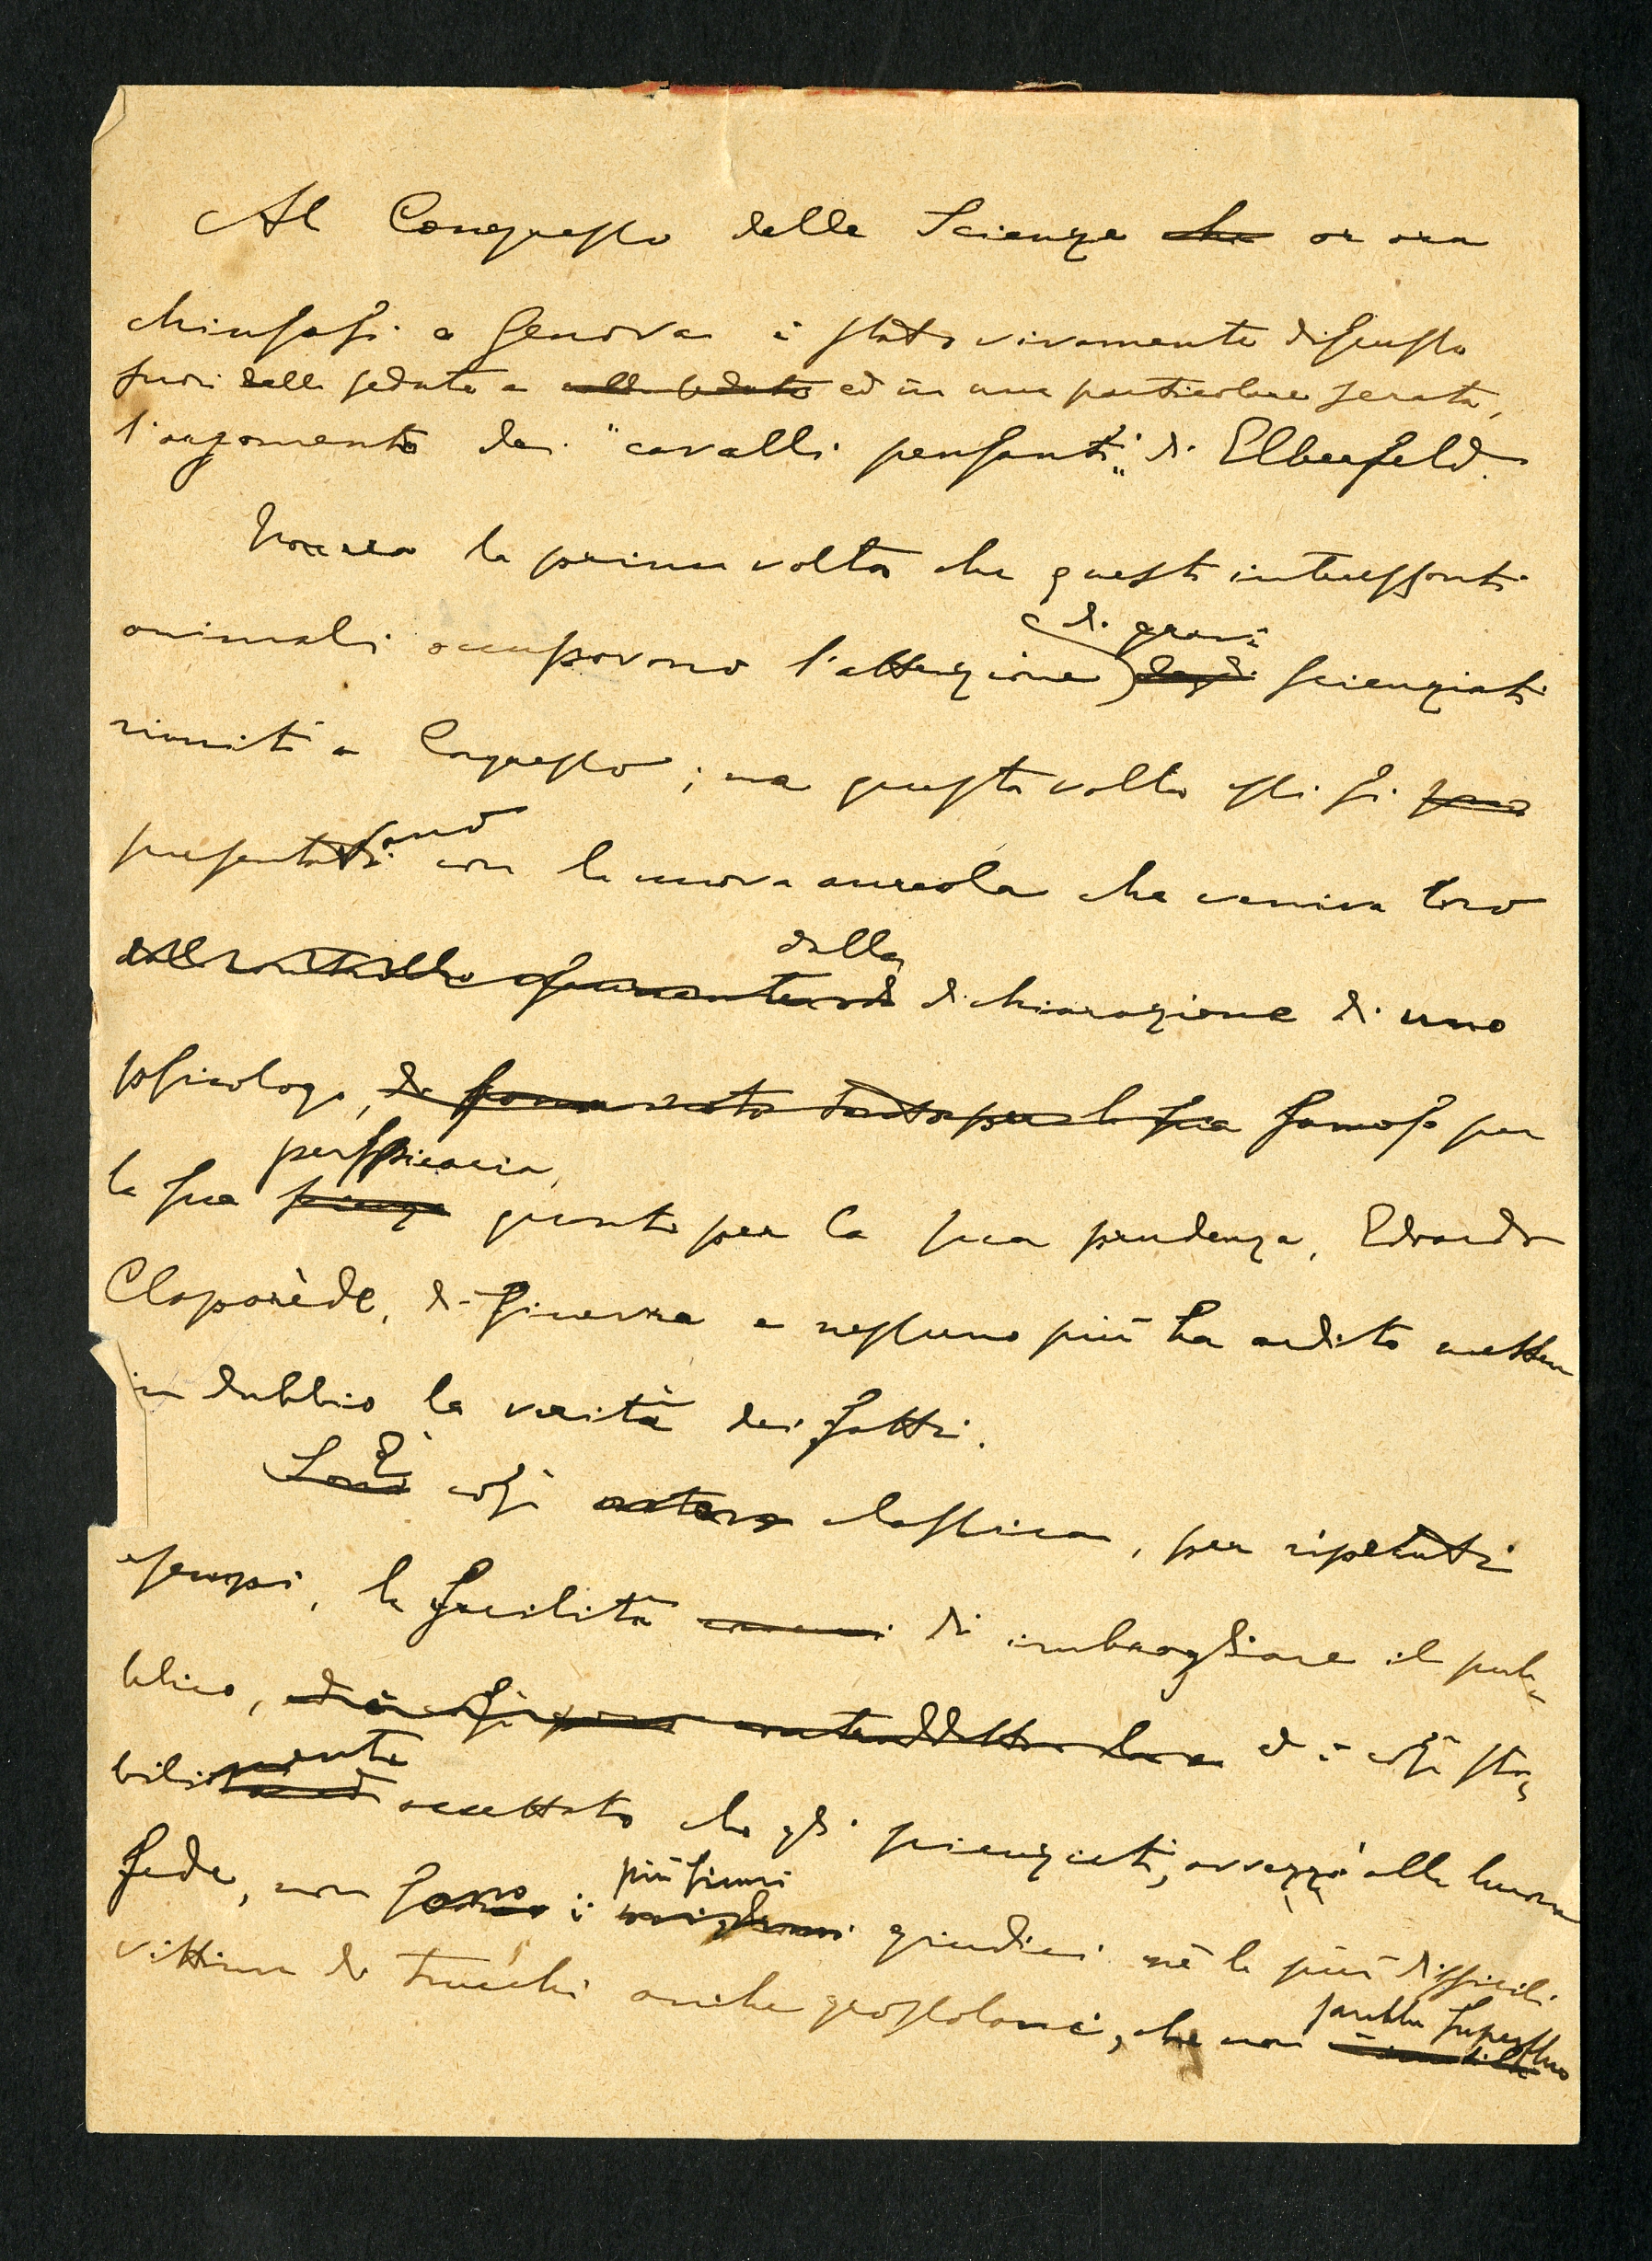 Al Congresso delle Scienze che or ora
chiusosi a Genova è stato vivamente discusso
fuori delle sedute e nelle sedute ed in una particolare serata,
l'argomento dei "cavalli pensanti" di Elberfeld.
Non era la prima volta che questi interessanti
di gravi
animali occupavano l'attenzione degli scienziati
riuniti a Congresso; ma questa volta essi si sono
presentavano con la nuova aureola che veniva loro
dalla
dichiarazione di uno
psicologo, di fama nota tanto per la sua famoso per
perspicacia,
la sua scienza quanto per la sua prudenza, Edoardo
Claparède, di Ginevra e nessuno più ha ardito mettere
in dubbio la verità dei fatti.
È
Sono così classica, per ripetuti
esempi, la facilità di imbrogliare il pub-
blico, ed è così sta-
bilmente accettato che gli scienziati, avvezzi alla buona
più fini
fede, non sono i giudici nè le più difficili
sarebbe superfluo
vittime di trucchi anche grossolani, che non